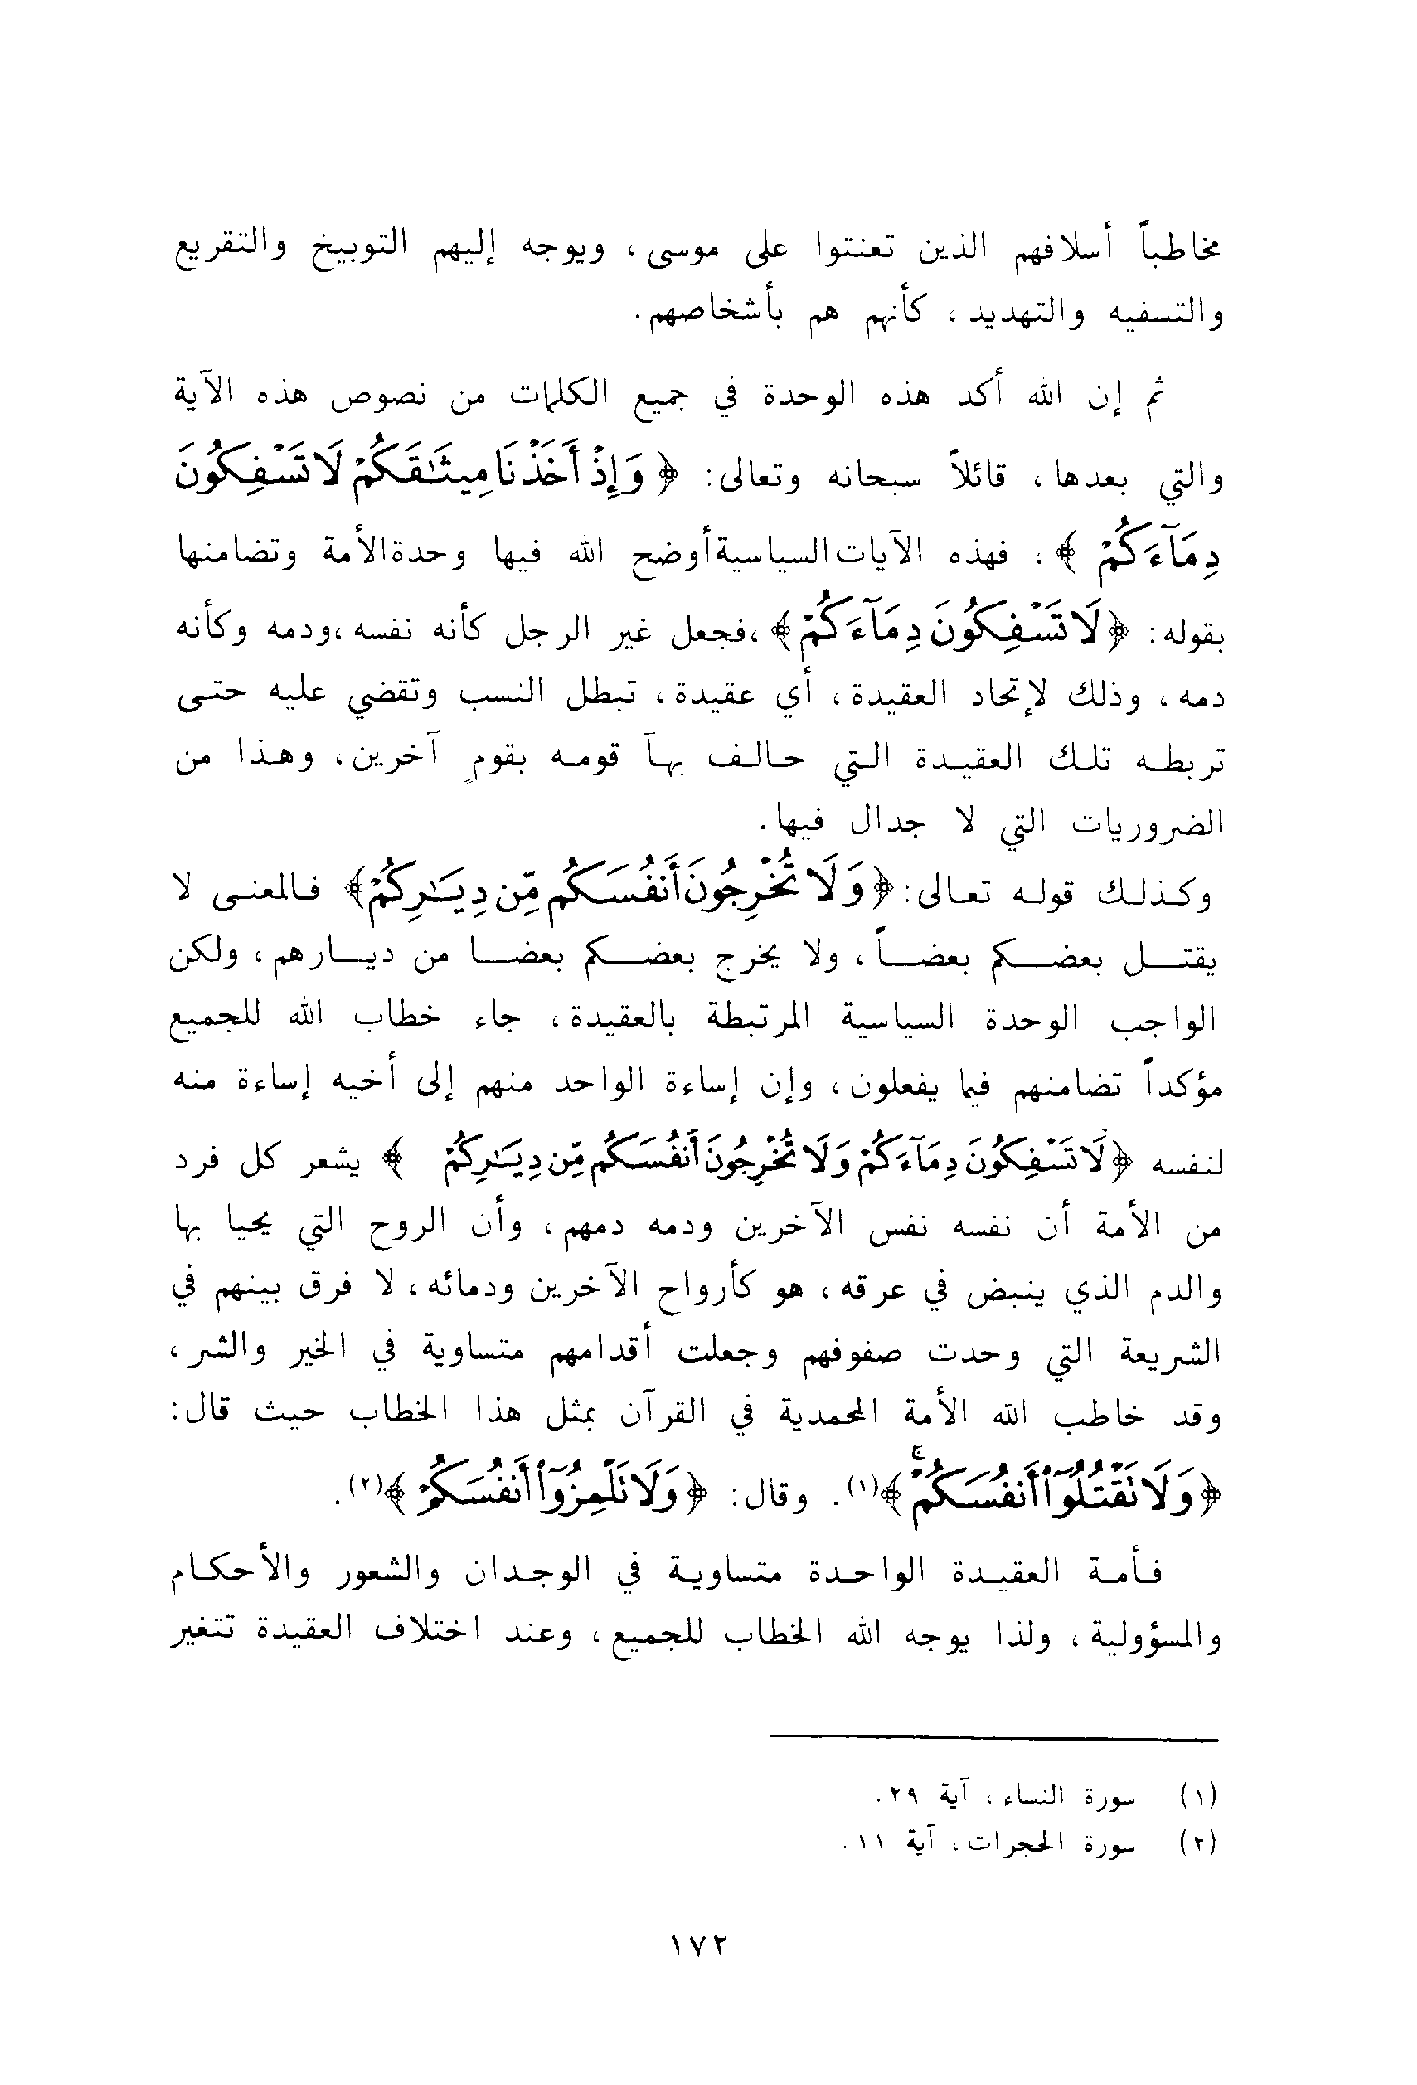 مخاطباً أسلافهم الذين تعنتوا على موسى، ويوجه إليهم التوبيخ والتقريع
والتسفيه والتهديد، كأنهم هم بأشخاصهم.
ثم إن الله أكد هذه الوحدة في جميع الكلمات من نصوص هذه الآية
والتي بعدها، قائلاً سبحانه وتعالى: ﴿ وَإِذْ أَخَذْنَا مِيثَٰقَكُمْ لَا تَسْفِكُونَ
دِمَآءَكُمْ ﴾: فهذه الآيات السياسية أوضح الله فيها وحدة الأمة وتضامنها
بقوله: ﴿لَا تَسْفِكُونَ دِمَآءَكُمْ﴾، فجعل غير الرجل كأنه نفسه، ودمه وكأنه
دمه، وذلك لإتحاد العقيدة، أي عقيدة، تبطل النسب وتقضي عليه حتى
تربطه تلك العقيدة التي حالف بهآ قومه بقومٍ آخرين، وهذا من
الضروريات التي لا جدال فيها.
وكذلك قوله تعالى: ﴿وَلَا تُخْرِجُونَ أَنفُسَكُم مِّن دِيَٰرِكُمْ﴾ فالمعنى لا
يقتل بعضكم بعضاً، ولا يخرج بعضكم بعضا من ديارهم، ولكن
الواجب الوحدة السياسية المرتبطة بالعقيدة، جاء خطاب الله للجميع
مؤكداً تضامنهم فيما يفعلون، وإن إساءة الواحد منهم إلى أخيه إساءة منه
لنفسه ﴿لَا تَسْفِكُونَ دِمَآءَكُمْ وَلَا تُخْرِجُونَ أَنفُسَكُم مِّن دِيَٰرِكُمْ ﴾ يشعر كل فرد
من الأمة أن نفسه نفس الآخرين ودمه دمهم، وأن الروح التي يحيا بها
والدم الذي ينبض في عرقه، هو كأرواح الآخرين ودمائه، لا فرق بينهم في
الشريعة التي وحدت صفوفهم وجعلت أقدامهم متساوية في الخير والشر،
وقد خاطب الله الأمة المحمدية في القرآن بمثل هذا الخطاب حيث قال:
﴿وَلَا تَقْتُلُوٓا۟ أَنفُسَكُمْ ۚ﴾(١). وقال: ﴿وَلَا تَلْمِزُوٓا۟ أَنفُسَكُمْ﴾(٢).
فأمة العقيدة الواحدة متساوية في الوجدان والشعور والأحكام
والمسؤولية، ولذا يوجه الله الخطاب للجميع، وعند اختلاف العقيدة تتغير
(١) سورة النساء، آية ٢٩.
(٢) سورة الحجرات، آية ١١.
١٧٢